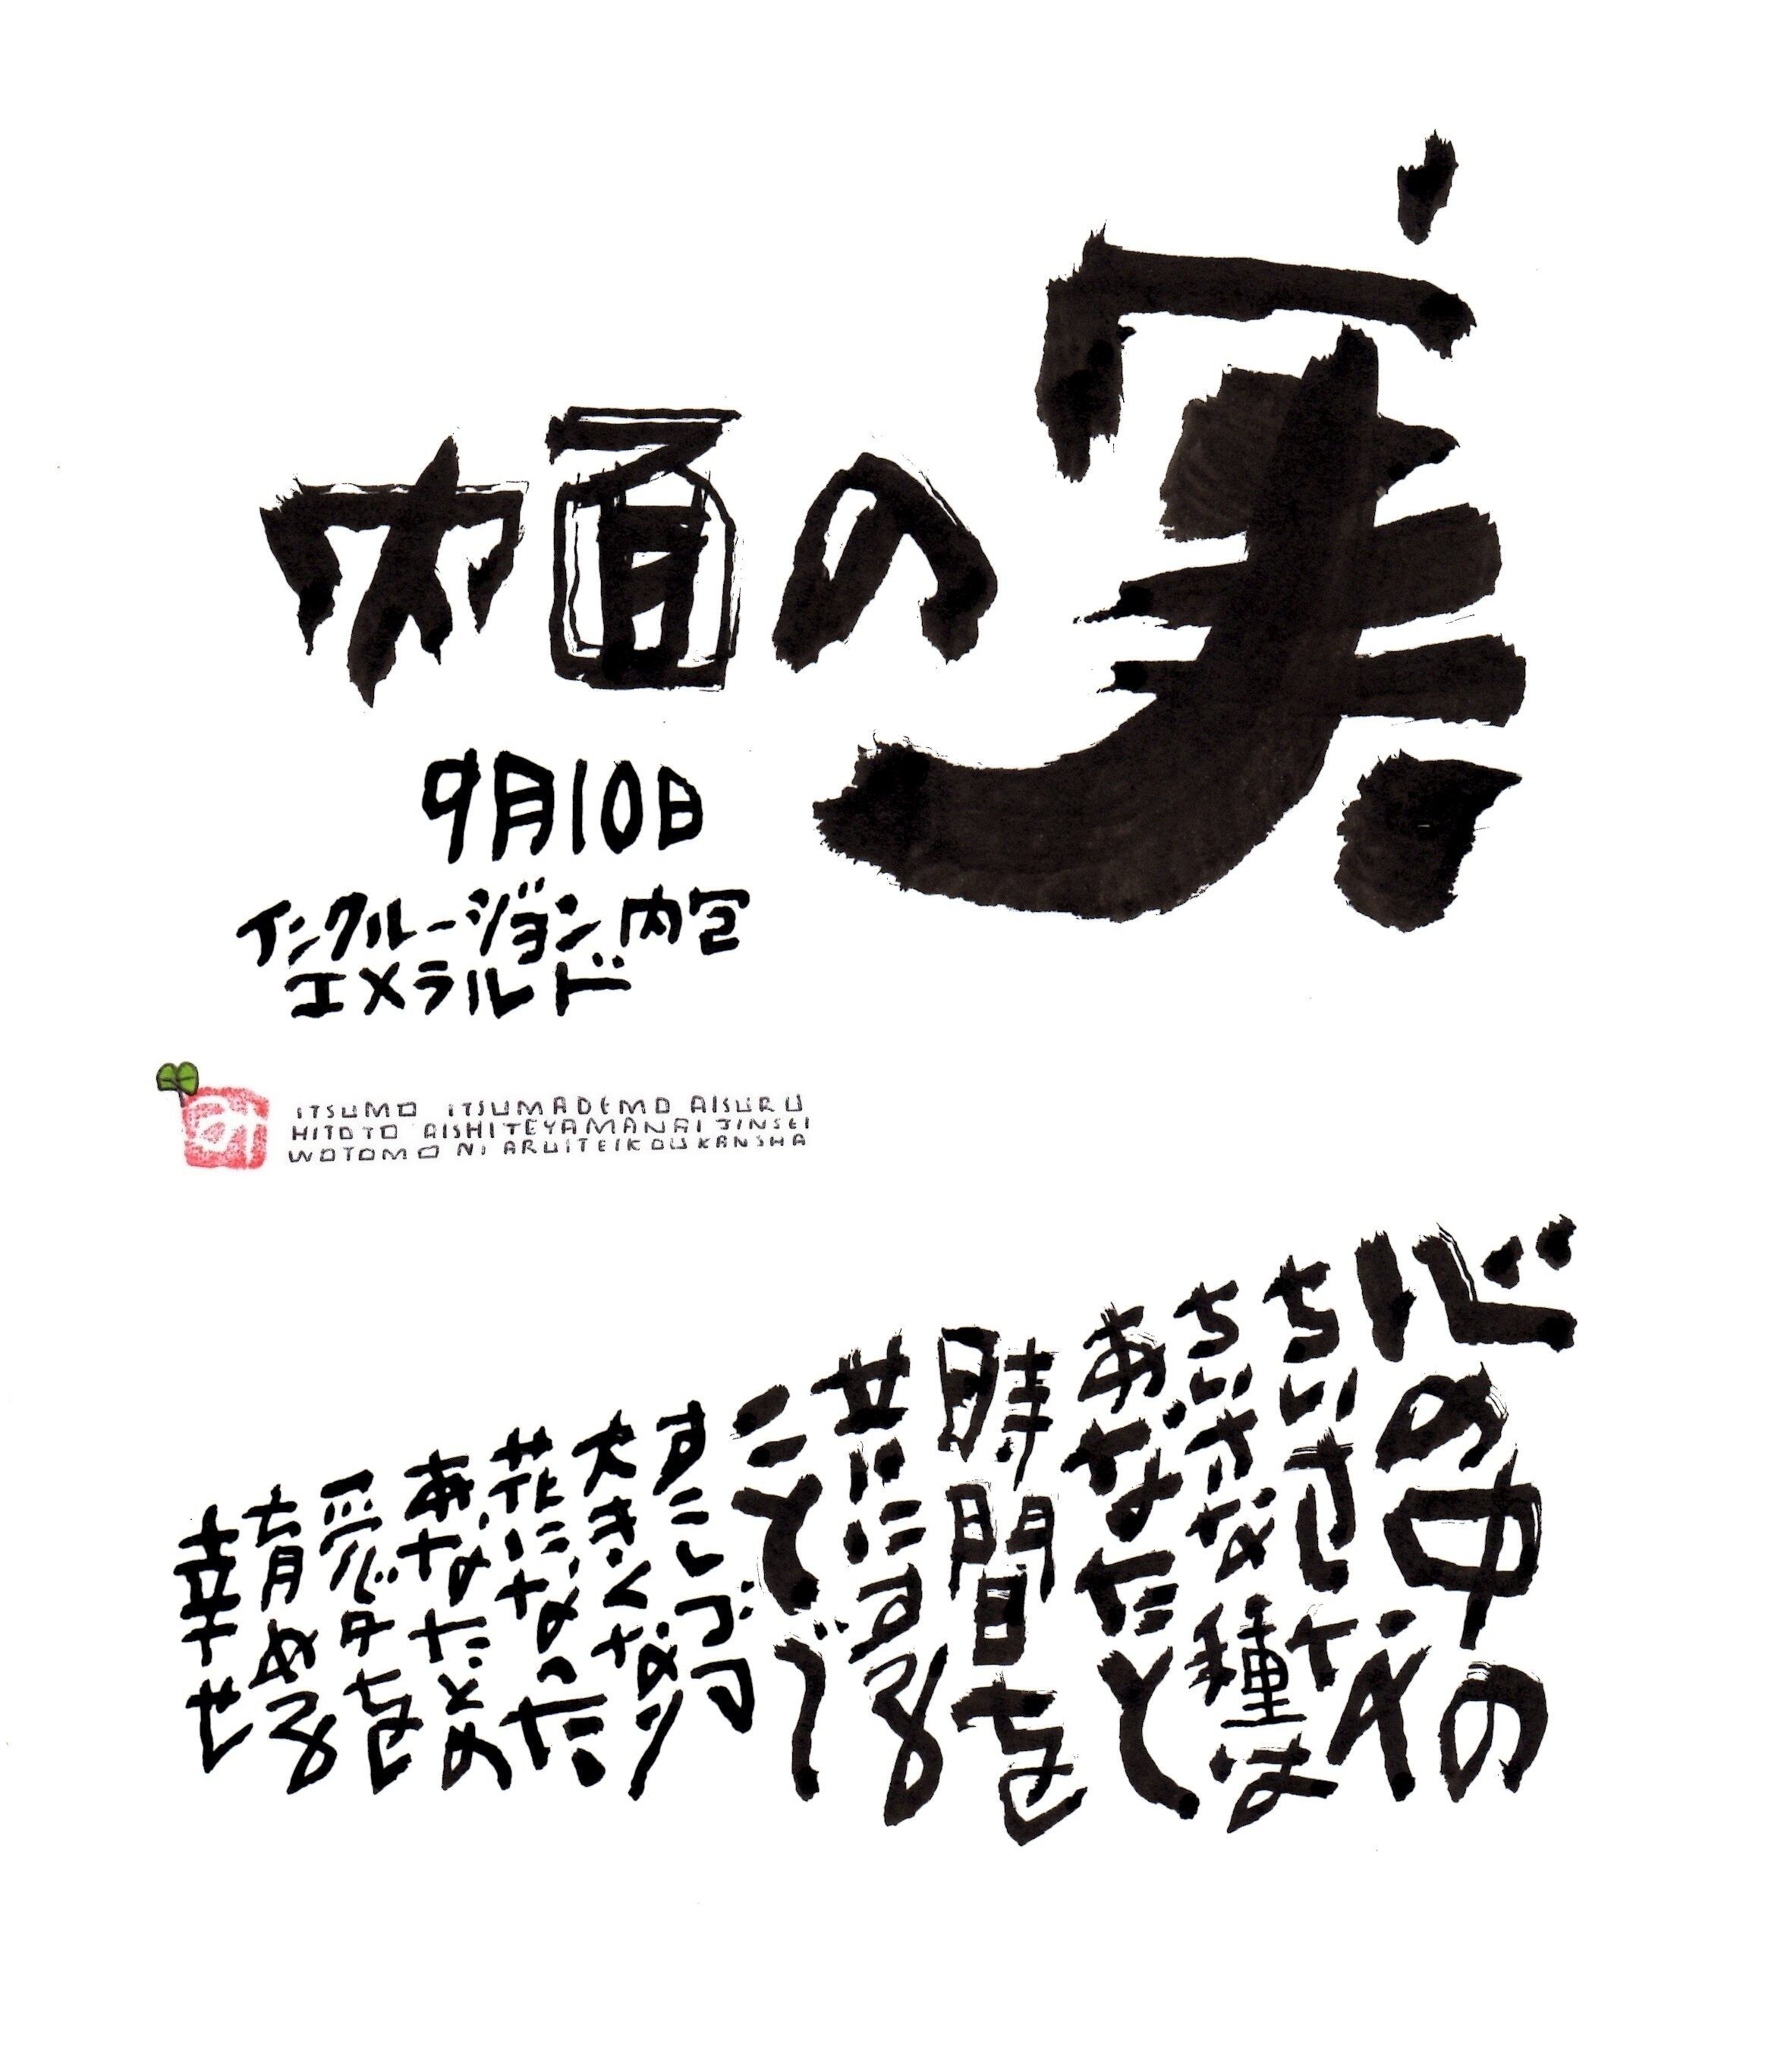 内面の実
9月10日
インクルージョン内包
エメラルド
み
ITSUMO ITSUMADEMO AISURU
HITOTO AISHITEYAMANAI JINSEI
WOTOMO NI ARUITEIKOU KANSHA
心の中の
ちいさな
ちいさな種は
あなたと
時間を
共にする
ことで
すこしづつ
大きくなり
花になった
あなたとの
愛を
育める
幸せ